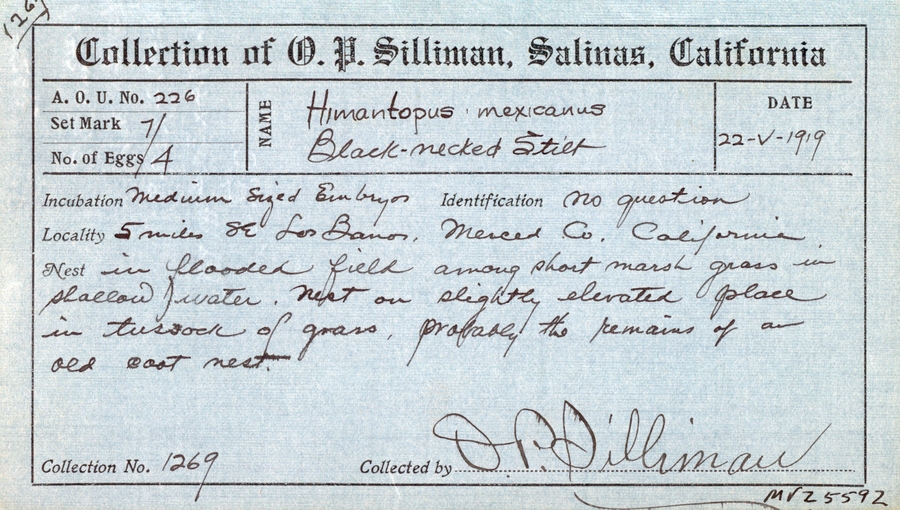 126
Collection of O. P. Silliman, Salinas, California
A. O. U. No. 226
Set Mark 7/
No. of Eggs /4
NAME
Himantopus mexicanus
Black-necked Stilt
DATE
22-V-1919
Incubation Medium Sized Embryos Identification No question
Locality 5 miles SE Los Banos, Merced Co. California
Nest in flooded field among short marsh grass in
shallow water. Nest on slightly elevated place
in tussock of grass, probably the remains of an
old coot nest.
Collection No. 1269
Collected by O. P. Silliman
MVZ 5592